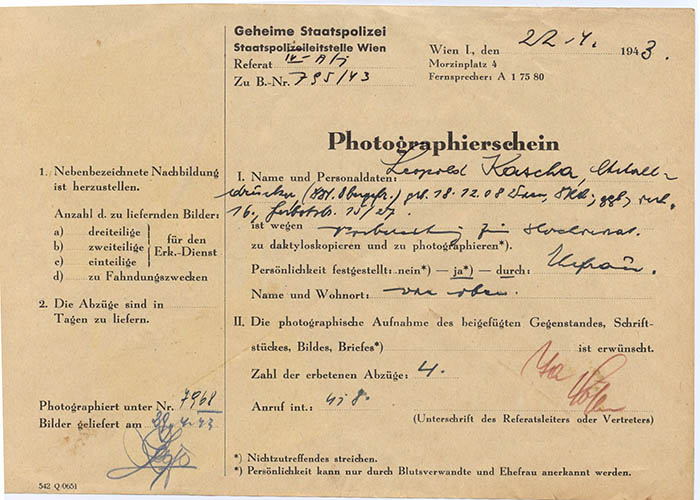 Geheime Staatspolizei
Staatspolizeileitstelle Wien
Referat IV-A/1
Zu B.-Nr. 795/43
Wien I., den 22.4. 1943.
Morzinplatz 4
Fernsprecher: A 1 75 80
Photographierschein
1. Nebenbezeichnete Nachbildung
ist herzustellen.
Anzahl d. zu liefernden Bilder:
a) dreiteilige
b) zweiteilige
c) einteilige
für den
Erk.-Dienst
d) zu Fahndungszwecken
2. Die Abzüge sind in
Tagen zu liefern.
Photographiert unter Nr. 7968
Bilder geliefert am 29.4.43
I. Name und Personaldaten: Leopold Kascha, Metall-
drucker, geb. 18.12.08 Wien,
16., 15/27.
ist wegen Vorbereitung zum Hochverrat
zu daktyloskopieren und zu photographieren*).
Persönlichkeit festgestellt: nein*) — ja*) — durch: Ehefrau.
Name und Wohnort: wie oben.
II. Die photographische Aufnahme des beigefügten Gegenstandes, Schrift-
stückes, Bildes, Briefes*) ist erwünscht.
Zahl der erbetenen Abzüge: 4.
Anruf int.: 458.
(Unterschrift des Referatsleiters oder Vertreters)
*) Nichtzutreffendes streichen.
*) Persönlichkeit kann nur durch Blutsverwandte und Ehefrau anerkannt werden.
542 Q 0651